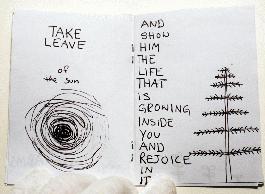 TAKE
LEAVE
of
the sun
AND
SHOW
HIM
THE
LIFE
THAT
iS
GROWING
INSIDE
YOU
AND
REJOICE
IN
IT